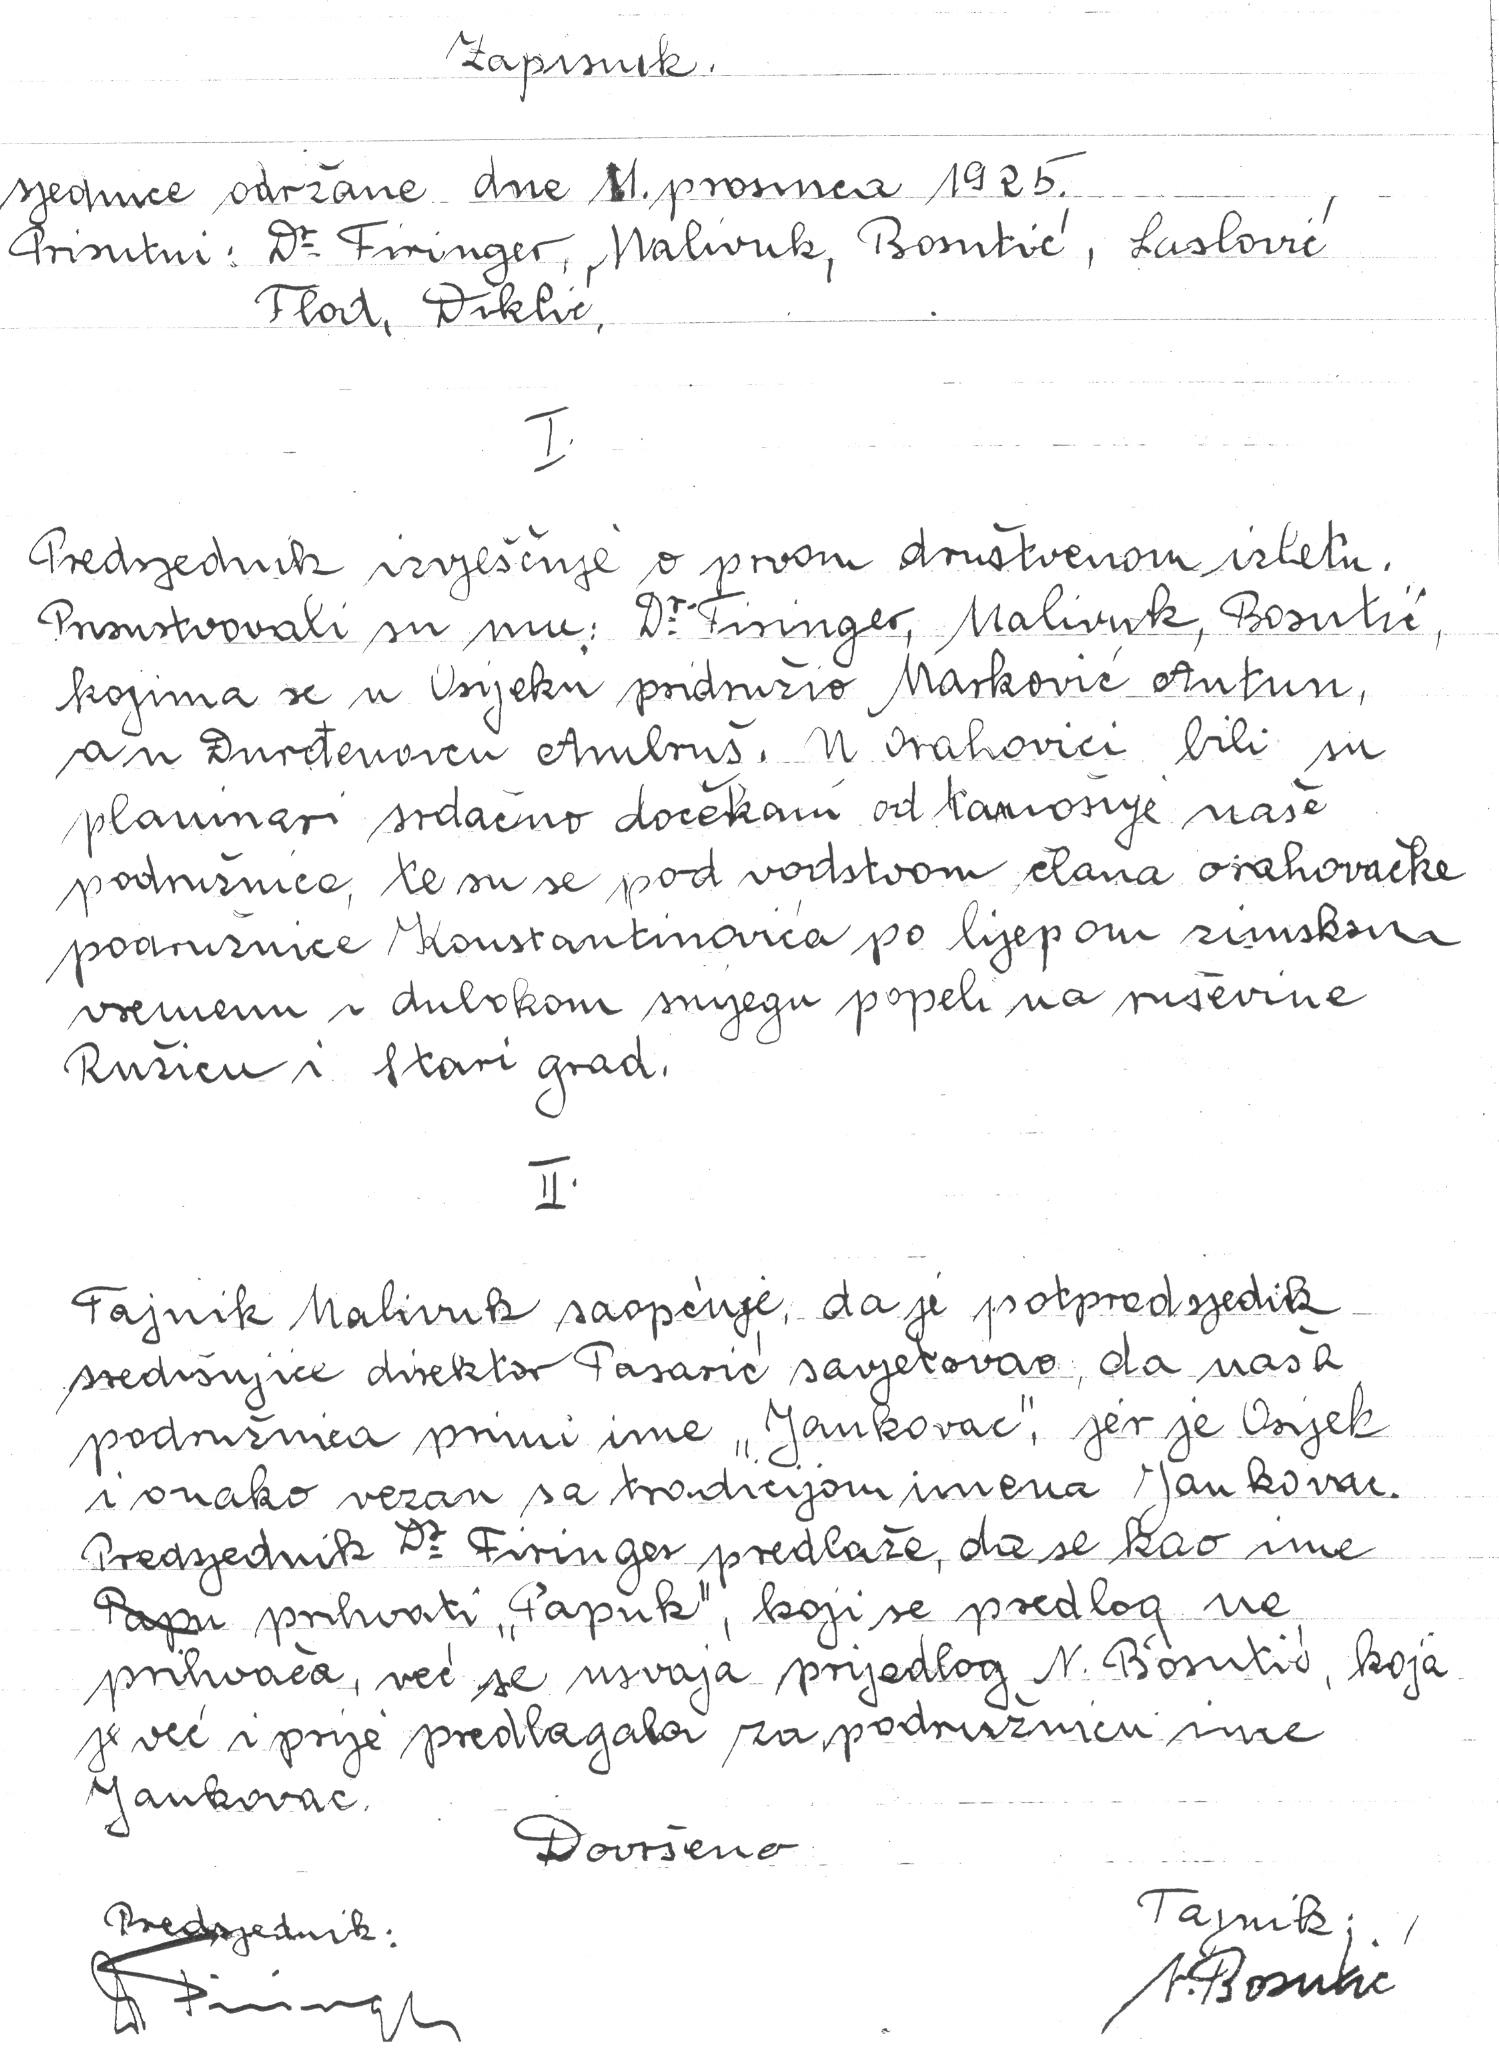 Zapisnik.
sjednice održane dne 11. prosinca 1925.
Prisutni: Dr. Firinger, Malivuk, Bosutić, Laslović
Flod, Diklić,
I.
Predsjednik izvješćuje o prvom društvenom izletu.
Prisustvovali su mu: Dr. Firinger, Malivuk, Bosutić,
kojima se u Osijeku pridružio Marković Antun,
a u Đurđenovcu Ambruš. U Orahovici bili su
planinari srdačno dočekani od tamošnje naše
podružnice, te su se pod vodstvom člana orahovačke
podružnice Konstantinovića po lijepom zimskom
vremenu i dubokom snijegu popeli na ruševine
Ružicu i Stari grad.
II.
Tajnik Malivuk saopćuje, da je potpredsjedik
središnjice direktor Pasarić savjetovao, da naša
podružnica primi ime „Jankovac", jer je Osijek
i onako vezan sa tradicijom imena Jankovac.
Predsjednik Dr. Firinger predlaže, da se kao ime
Papu prihvati „Papuk", koji se predlog ne
prihvaća, već se usvaja prijedlog N. Bosutić, koja
je već i prije predlagala za podružnicu ime
Jankovac.
Dovršeno
Predsjednik:
Tajnik:
Firinger
N. Bosutić